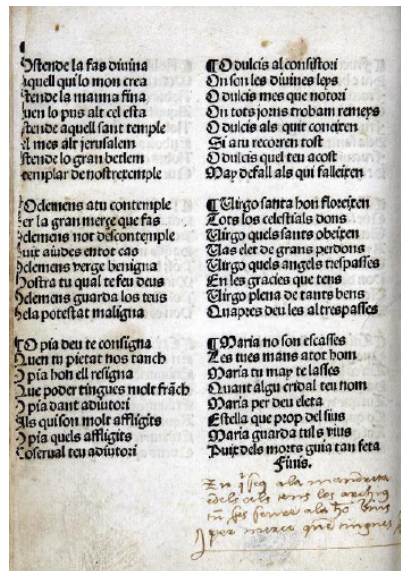 Ostende la fas diuina
aquell qui lo mon crea
stende la manna fina
uen lo pus alt cel esta
stende aquell sant temple
l mes alt jerusalem
stende lo gran betlem
templar de nostrexemple
O clemens a tu contemple
er la gran merçe que fas
clemens not descontemple
uix aiudes en tot cas
clemens verge benigna
ostra tu qual te feu deus
clemens guarda los teus
ela potestat maligna
¶O pia deu te consigna
Quen tu pietat nos tanch
O pia hon ell resigna
Que poder tingues molt frãch
O pia dant adiutori
Als qui son molt affligits
O pia quels affligits
Coserual teu adiutori
¶O dulcis al consistori
On son les diuines leys
O dulcis mes que notori
On tots jorns trobam remeys
O dulcis als quit coneixen
Si a tu recorren tost
O dulcis quel teu acost
May defall als qui falleixen
¶Uirgo santa hon floreixen
Tots los celestials dons
Uirgo quels sants obeixen
Uas elet de grans perdons
Uirgo quels angels trespasses
En les gracies que tens
Uirgo plena de tants bens
Quapres deu les als trespasses
¶Maria no son escasses
Les tues mans a tot hom
Maria tu may te lasses
Quant algu cridal teu nom
Maria per deu eleta
Estella que prop del sius
Maria guarda tuls vius
Puix dels morts guia tan feta
Finis.
per merce que